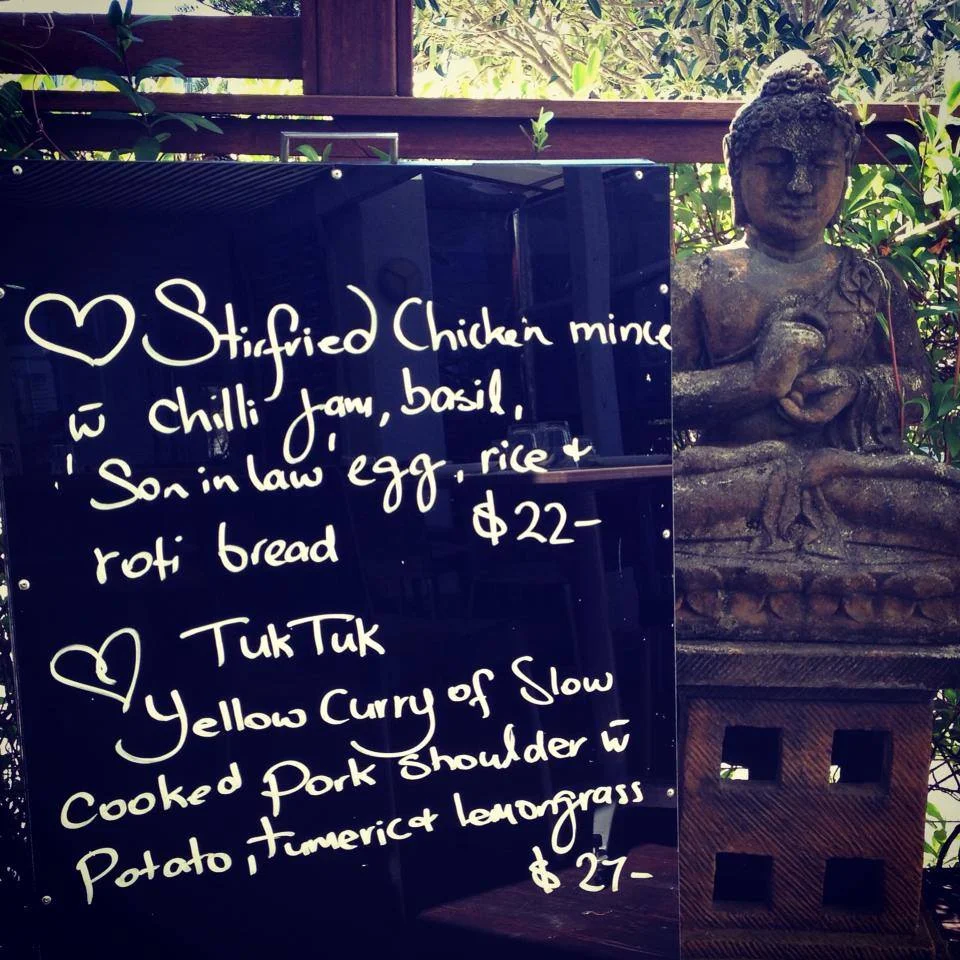 Stirfried Chicken mince
w̄ chilli jam, basil,
'Son in law' egg, rice +
roti bread $22-
Tuk Tuk
Yellow Curry of Slow
Cooked Pork Shoulder w̄
Potato, tumeric + lemongrass
$27-